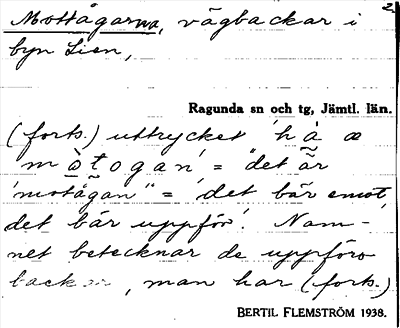 2.
Mottågarna, vägbackar i
byn Lien,
Ragunda sn och tg, Jämtl. län.
(forts.) uttrycket 'hȧ æ
mòtogan' = "det är
'motågan'" = det bär emot,
det bär uppför'. Nam-
net betecknar de uppförs
backar, man har (forts.)
BERTIL FLEMSTRÖM 1938.